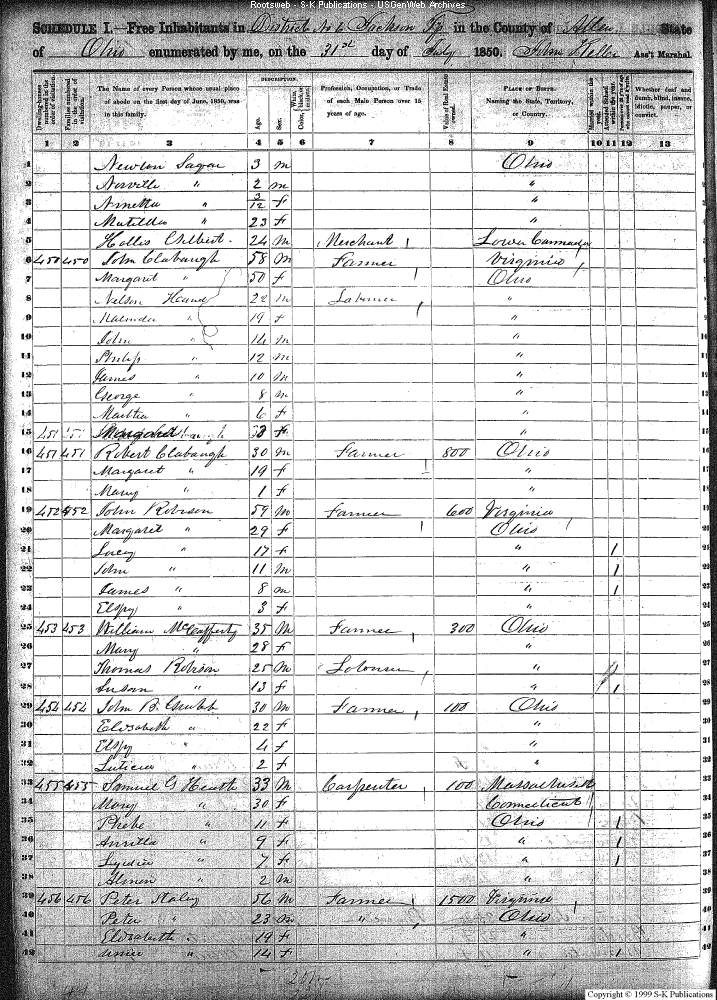 Rootsweb - S-K Publications - USGenWeb Archives
SCHEDULE I.—Free Inhabitants in District No 6 Jackson Tp in the County of Allen State
of Ohio enumerated by me, on the 31st day of July 1850. John Ass't Marshal.
Dwelling-houses numbered in the order of visitation.
Families numbered in the order of visitation.
The Name of every Person whose usual place of abode on the first day of June, 1850, was in this family.
DESCRIPTION.
Age.
Sex.
White, black, or mulatto.
Color,
Profession, Occupation, or Trade of each Male Person over 15 years of age.
Value of Real Estate owned.
PLACE OF BIRTH.
Naming the State, Territory, or Country.
Married within the year.
Attended School within the year.
Whether deaf and dumb, blind, insane, idiotic, pauper, or convict.
1 2 3 4 5 6 7 8 9 10 11 12 13
1 Newton 3 m Ohio 1
2 " 2 m " 2
3 " 3/12 f " 3
4 Matilda " 23 f " 4
5 Hollis Gilbert. 24 M Merchant Lower Cannada 5
6 450 450 John Clabaugh 58 M Farmer Virginia 6
7 Margaret " 50 f Ohio 7
8 Nelson 22 m Laborer " 8
9 Malinda " 19 f " 9
10 John " 14 m " 10
11 Philip " 12 m " 11
12 James " 10 m " 12
13 George " 8 m " 13
14 Martha " 6 f " 14
15 451 151 f " 15
16 451 451 Robert Clabaugh 30 M Farmer 800 Ohio 16
17 Margaret " 19 f " 17
18 Mary " 1 f " 18
19 452 452 John Robison 59 M Farmer 600 Virginia 19
20 Margaret " 29 f Ohio 20
21 Lucy " 17 f " 1 21
22 John " 11 M " 1 22
23 James " 8 m " 1 23
24 Elspy " 3 f " 24
25 453 453 William McCafferty 35 M Farmer 300 Ohio 25
26 Mary " 28 f " 26
27 Thomas Robison 25 M " 1 27
28 Susan " 13 f " 1 28
29 454 454 John B. Grubb 30 M Farmer 100 Ohio 29
30 Elisabeth " 22 f " 30
31 Elspy " 4 f " 31
32 Luticia " 2 f " 32
33 455 455 Samuel G Heath 33 M Carpenter 100 Massachusetts 33
34 Mary " 30 f Connecticut 34
35 Phebe " 11 f Ohio 1 35
36 " 9 f " 1 36
37 Lydia " 7 f " 1 37
38 " 2 M " 38
39 456 456 Peter Staley 56 M Farmer 1500 Virginia 39
40 Peter " 23 M " Ohio 40
41 Elisabeth " 19 f " 41
42 " 14 f " 1 42
Copyright © 1999 S-K Publications